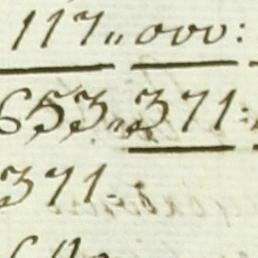 117,, 000:
653,, 371:
371.